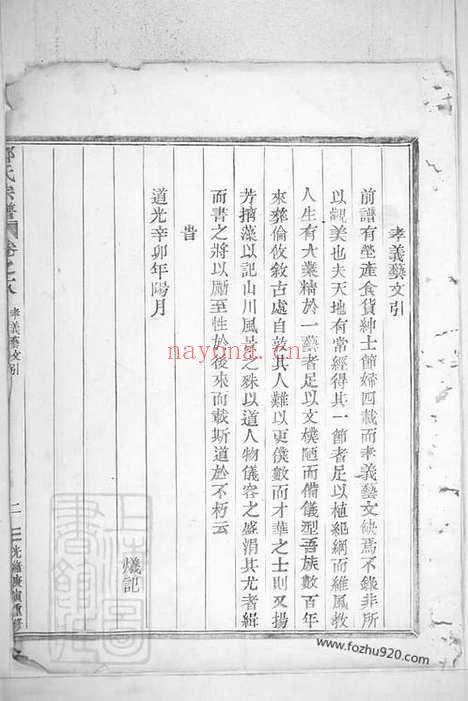 孝義藝文引
前譜有塋產食貨紳士節婦四載而孝義藝文缺焉不錄非所
以觀美也夫天地有常經得其一節者足以植紀綱而維風教
人生有大業精於一藝者足以文樸陋而備儀型吾族數百年
來彝倫攸敘古處自敦其人難以更僕數而才華之士則又揚
芳摛藻以記山川風景之殊以道人物儀容之盛涓其尤者緝
而書之將以勵至性於後來而載斯道於不朽云
昔
道光辛卯年陽月
爔記
氏宗譜
卷之八
孝義藝文引
二
光緒庚寅重修
上海圖書館藏
nayona.cn
www.fozhu920.com